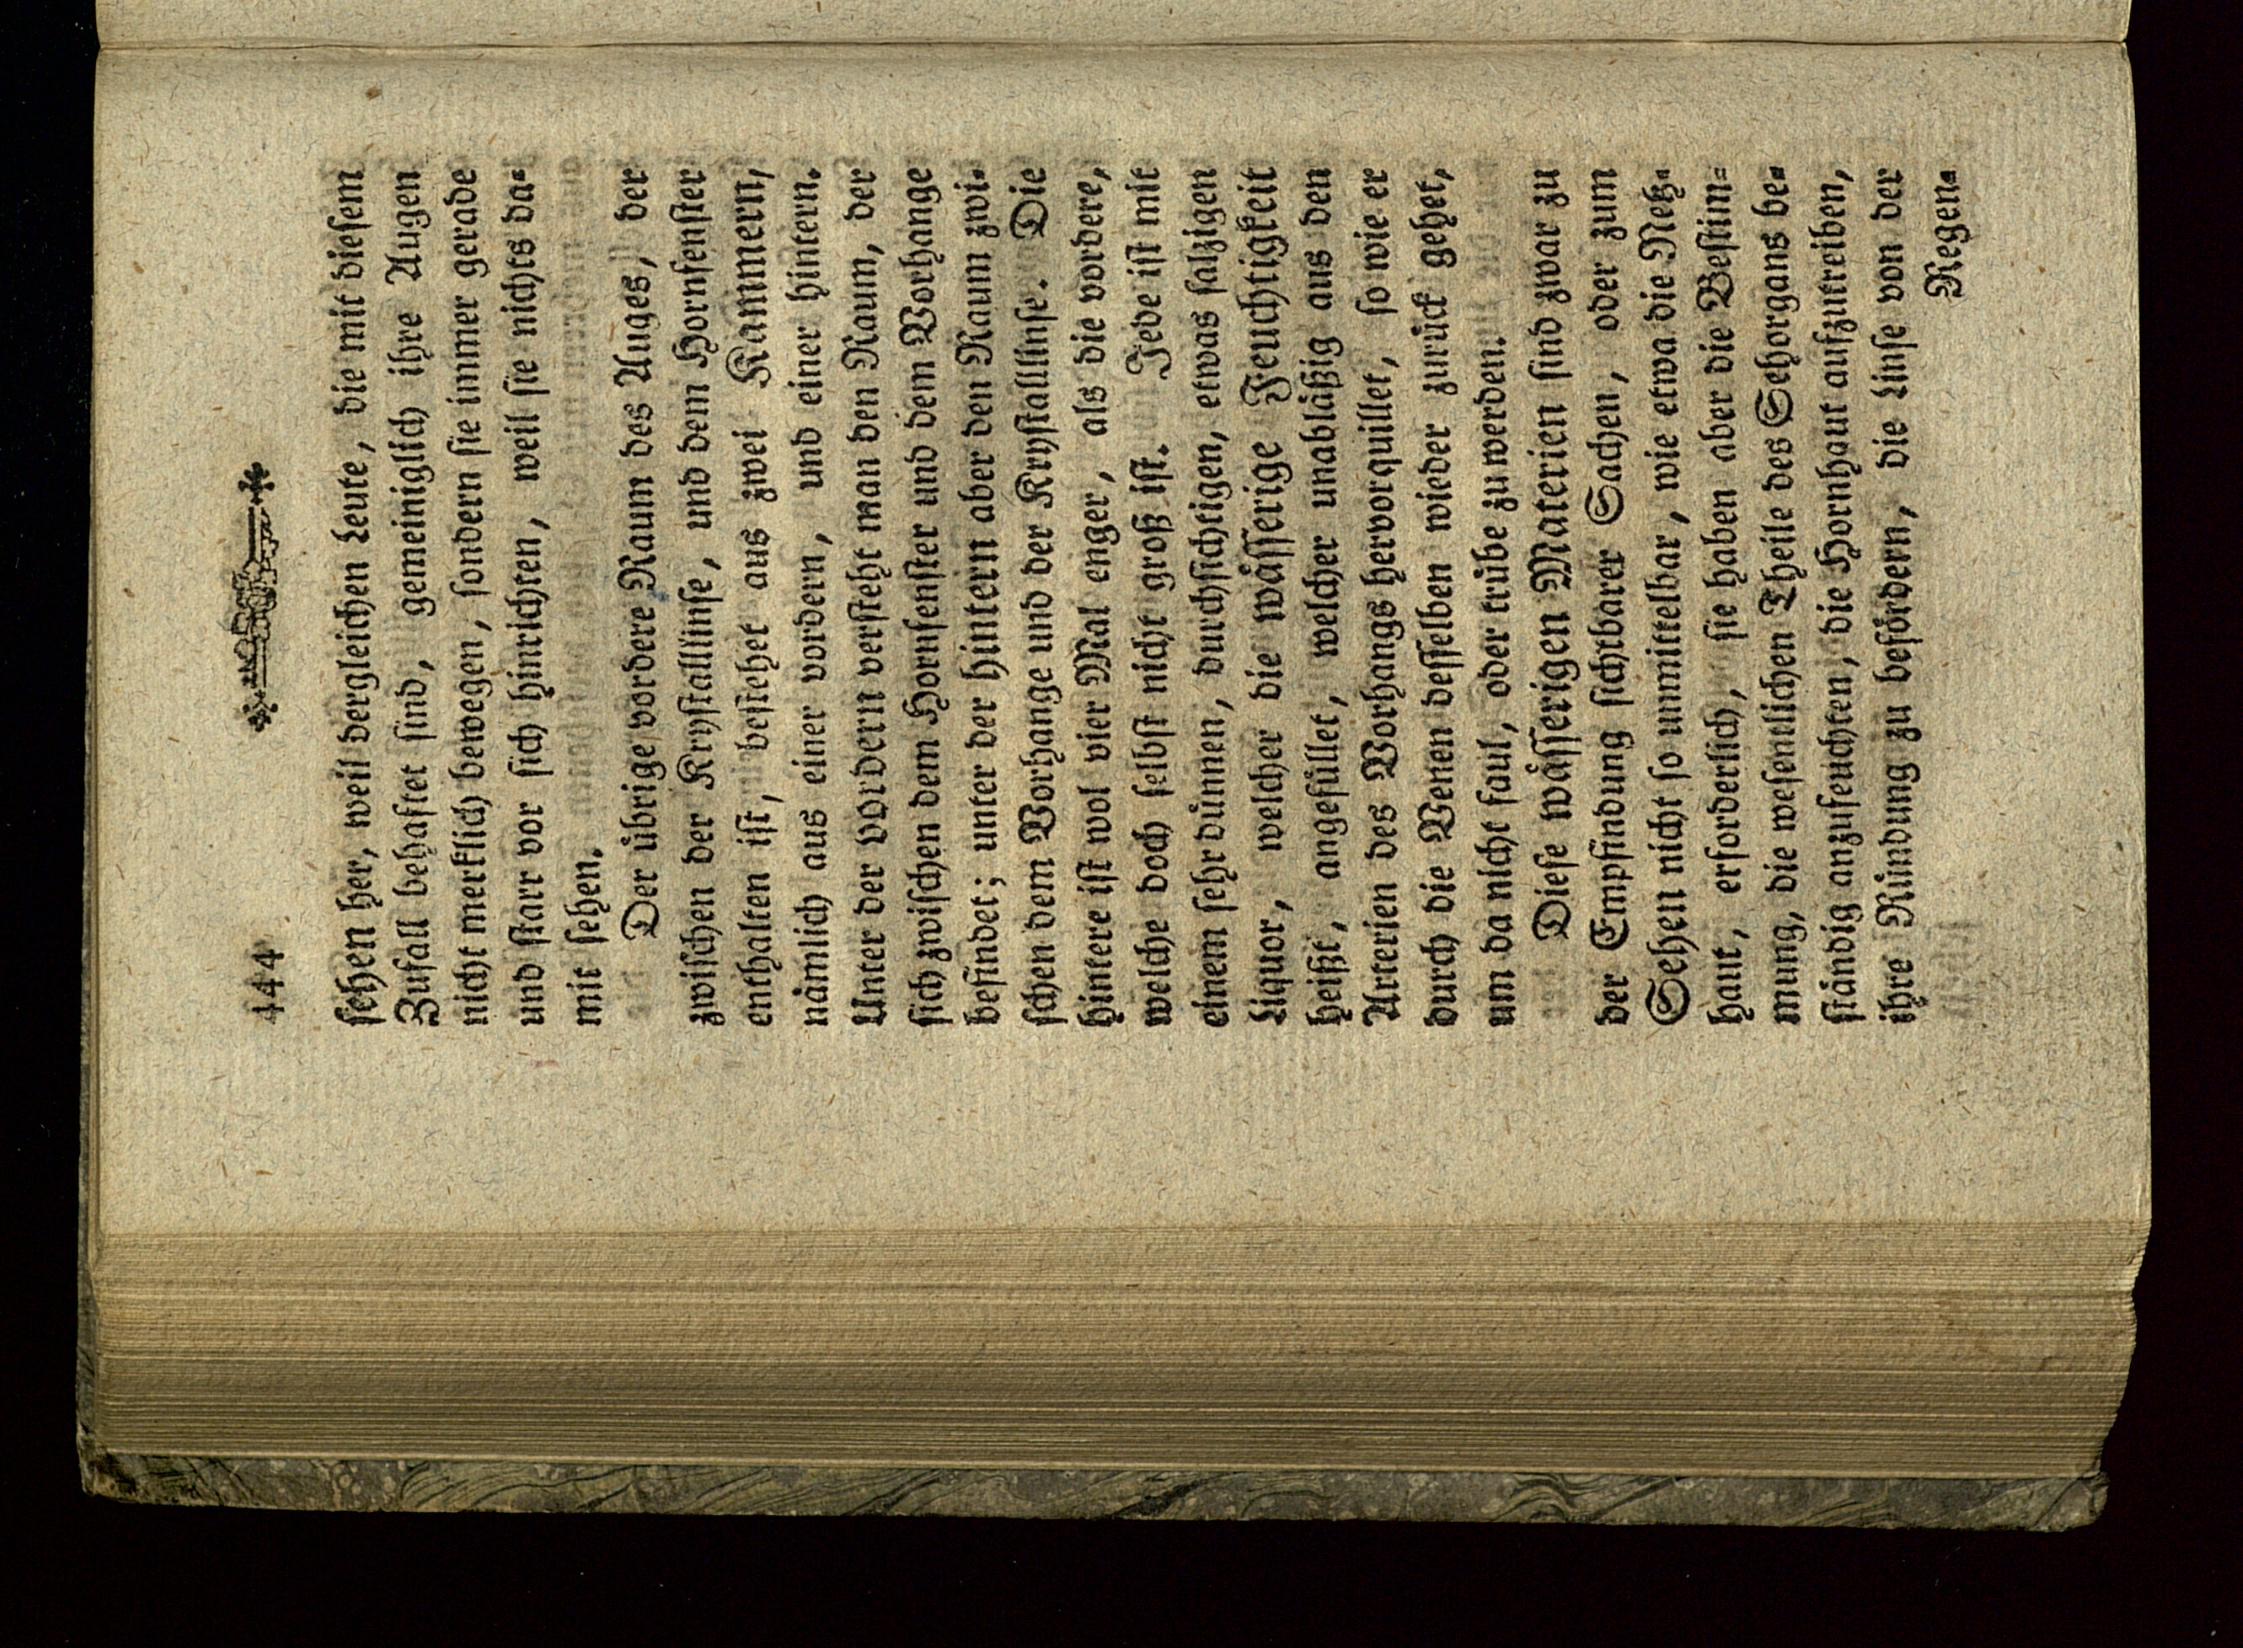 444
ſehen her, weil dergleichen Leute, die mit dieſem
Zufall behaftet ſind, gemeiniglich ihre Augen
nicht merklich bewegen, ſondern ſie immer gerade
und ſtarr vor ſich hinrichten, weil ſie nichts da⸗
mit ſehen.
Der uͤbrige vordere Raum des Auges, der
zwiſchen der Kryſtallinſe, und dem Hornfenſter
enthalten iſt, beſtehet aus zwei Kammern,
naͤmlich aus einer vordern, und einer hintern.
Unter der vordern verſteht man den Raum, der
ſich zwiſchen dem Hornfenſter und dem Vorhange
befindet; unter der hintern aber den Raum zwi⸗
ſchen dem Vorhange und der Kryſtalllinſe. Die
hintere iſt wol vier Mal enger, als die vordere,
welche doch ſelbſt nicht groß iſt. Jede iſt mit
einem ſehr duͤnnen, durchſichtigen, etwas ſalzigen
Liquor, welcher die waͤſſerige Feuchtigkeit
heißt, angefuͤllet, welcher unablaͤßig aus den
Arterien des Vorhangs hervorquillet, ſo wie er
durch die Venen deſſelben wieder zuruͤck gehet,
um da nicht faul, oder truͤbe zu werden.
Dieſe waͤſſerigen Materien ſind zwar zu
der Empfindung ſichtbarer Sachen, oder zum
Sehen nicht ſo unmittelbar, wie etwa die Netz⸗
haut, erforderlich, ſie haben aber die Beſtim⸗
mung, die weſentlichen Theile des Sehorgans be⸗
ſtaͤndig anzufeuchten, die Hornhaut aufzutreiben,
ihre Ruͤndung zu befoͤrdern, die Linſe von der
Regen⸗